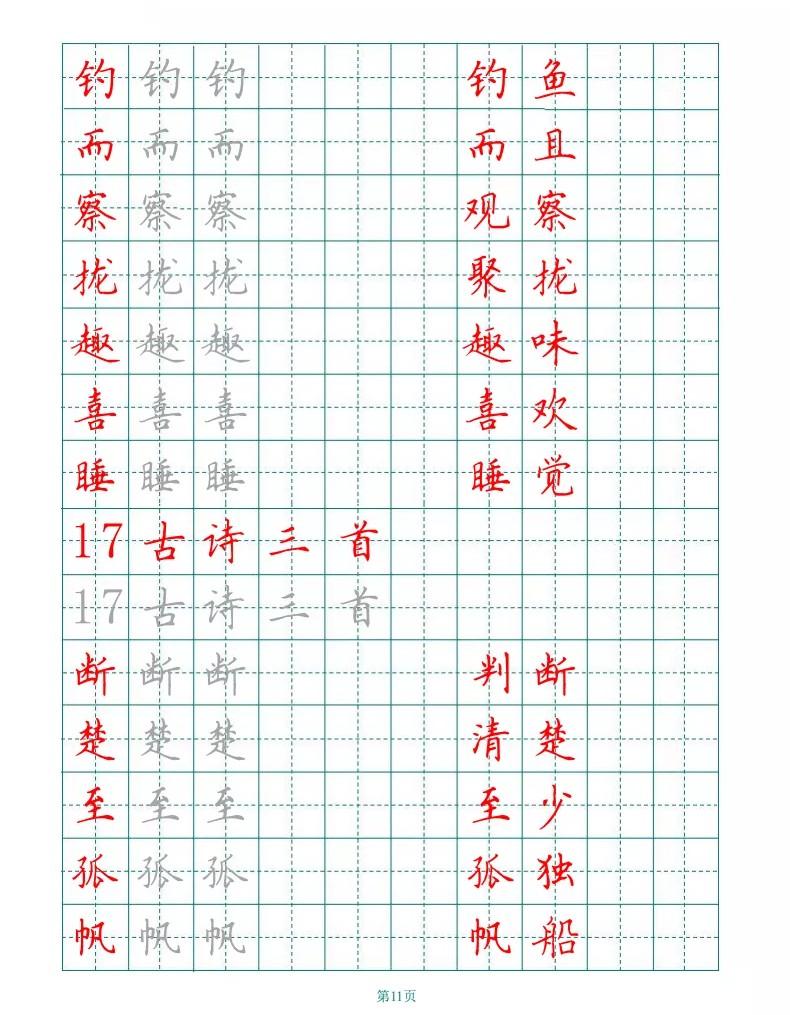 钓 钓 钓 钓 鱼
而 而 而 而 且
察 察 察 观 察
拢 拢 拢 聚 拢
趣 趣 趣 趣 味
喜 喜 喜 喜 欢
睡 睡 睡 睡 觉
17 古 诗 三 首
17 古 诗 三 首
断 断 断 判 断
楚 楚 楚 清 楚
至 至 至 至 少
孤 孤 孤 孤 独
帆 帆 帆 帆 船
第11页